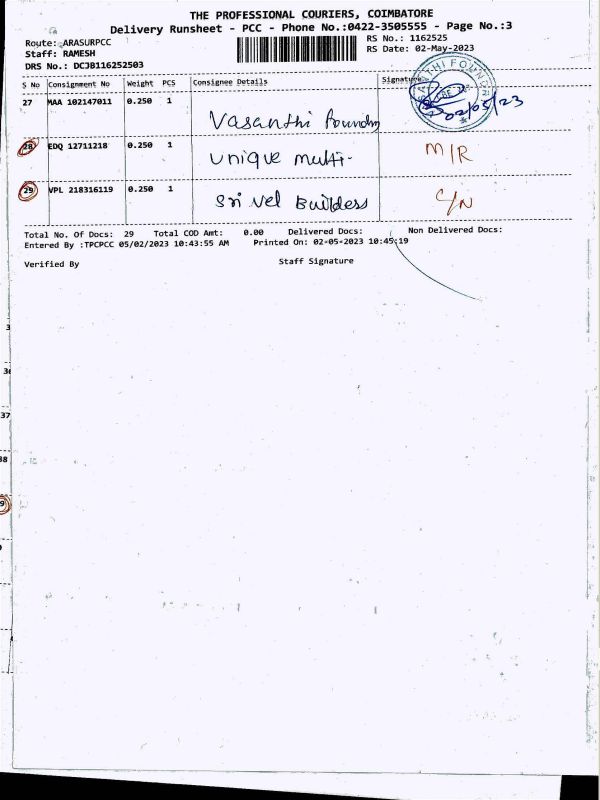 THE PROFESSIONAL COURIERS, COIMBATORE
Delivery Runsheet - PCC - Phone No.:0422-3505555 - Page No.:3
Route: ARASURPCC
RS No.: 1162525
Staff: RAMESH
RS Date: 02-May-2023
DRS No.: DCJB116252503
S No Consignment No Weight PCS Consignee Details Signature
27 MAA 102147011 0.250 1 Vasanthi Foundry 02/05/23
28 EDQ 12711218 0.250 1 Unique multi- M/R
29 VPL 218316119 0.250 1 Sri vel Builders C/N
Total No. Of Docs: 29 Total COD Amt: 0.00 Delivered Docs: Non Delivered Docs:
Entered By :TPCPCC 05/02/2023 10:43:55 AM Printed On: 02-05-2023 10:45:19
Verified By Staff Signature
37
38